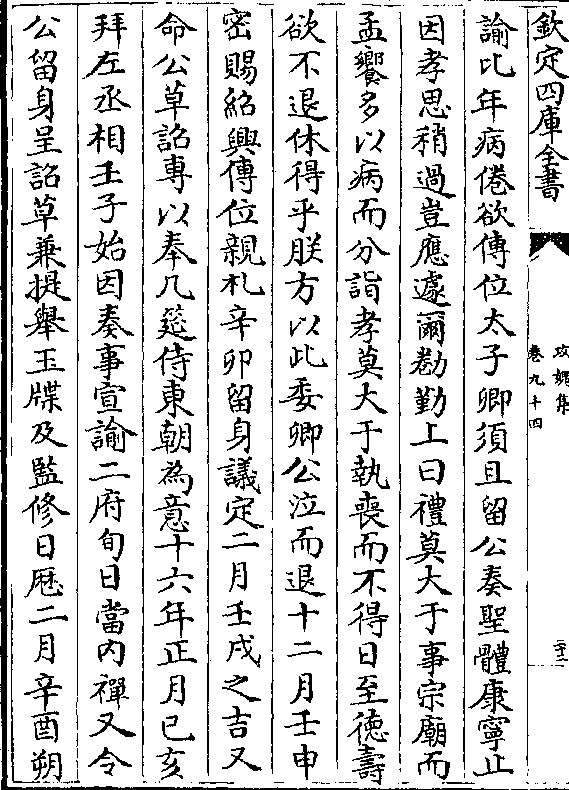 欽定四庫全書
攻媿集
卷九十四
二十二
諭比年病倦欲傳位太子卿須且留公奏聖體康寧止
因孝思稍過豈應遽爾勌勤上曰禮莫大于事宗廟而
孟饗多以病而分詣孝莫大于執喪而不得日至徳壽
欲不退休得乎朕方以此委卿公泣而退十二月壬申
密賜紹興傳位親札辛卯留身議定二月壬戌之吉又
命公草詔專以奉几筵侍東朝為意十六年正月已亥
拜左丞相壬子始因奏事宣諭二府旬日當内禪又令
公留身呈詔草兼提舉玉牒及監修日厯二月辛酉朔